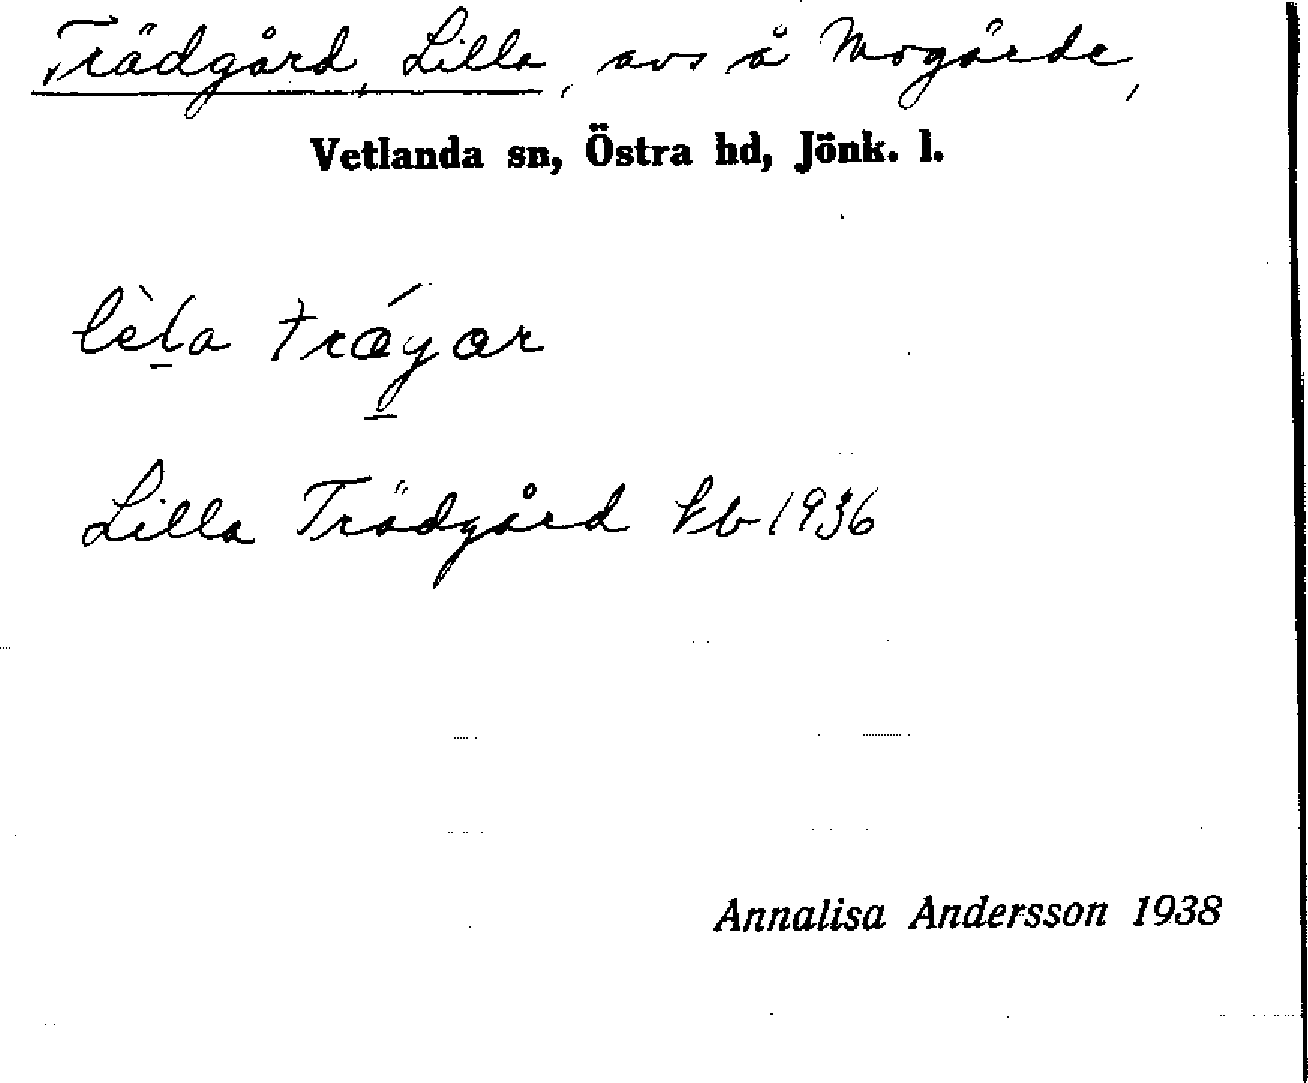 Trädgård, Lilla, avs å Mogärde,
Vetlanda sn, Östra hd, Jönk. l.
Lilla Trädgård kb 1936
Annalisa Andersson 1938